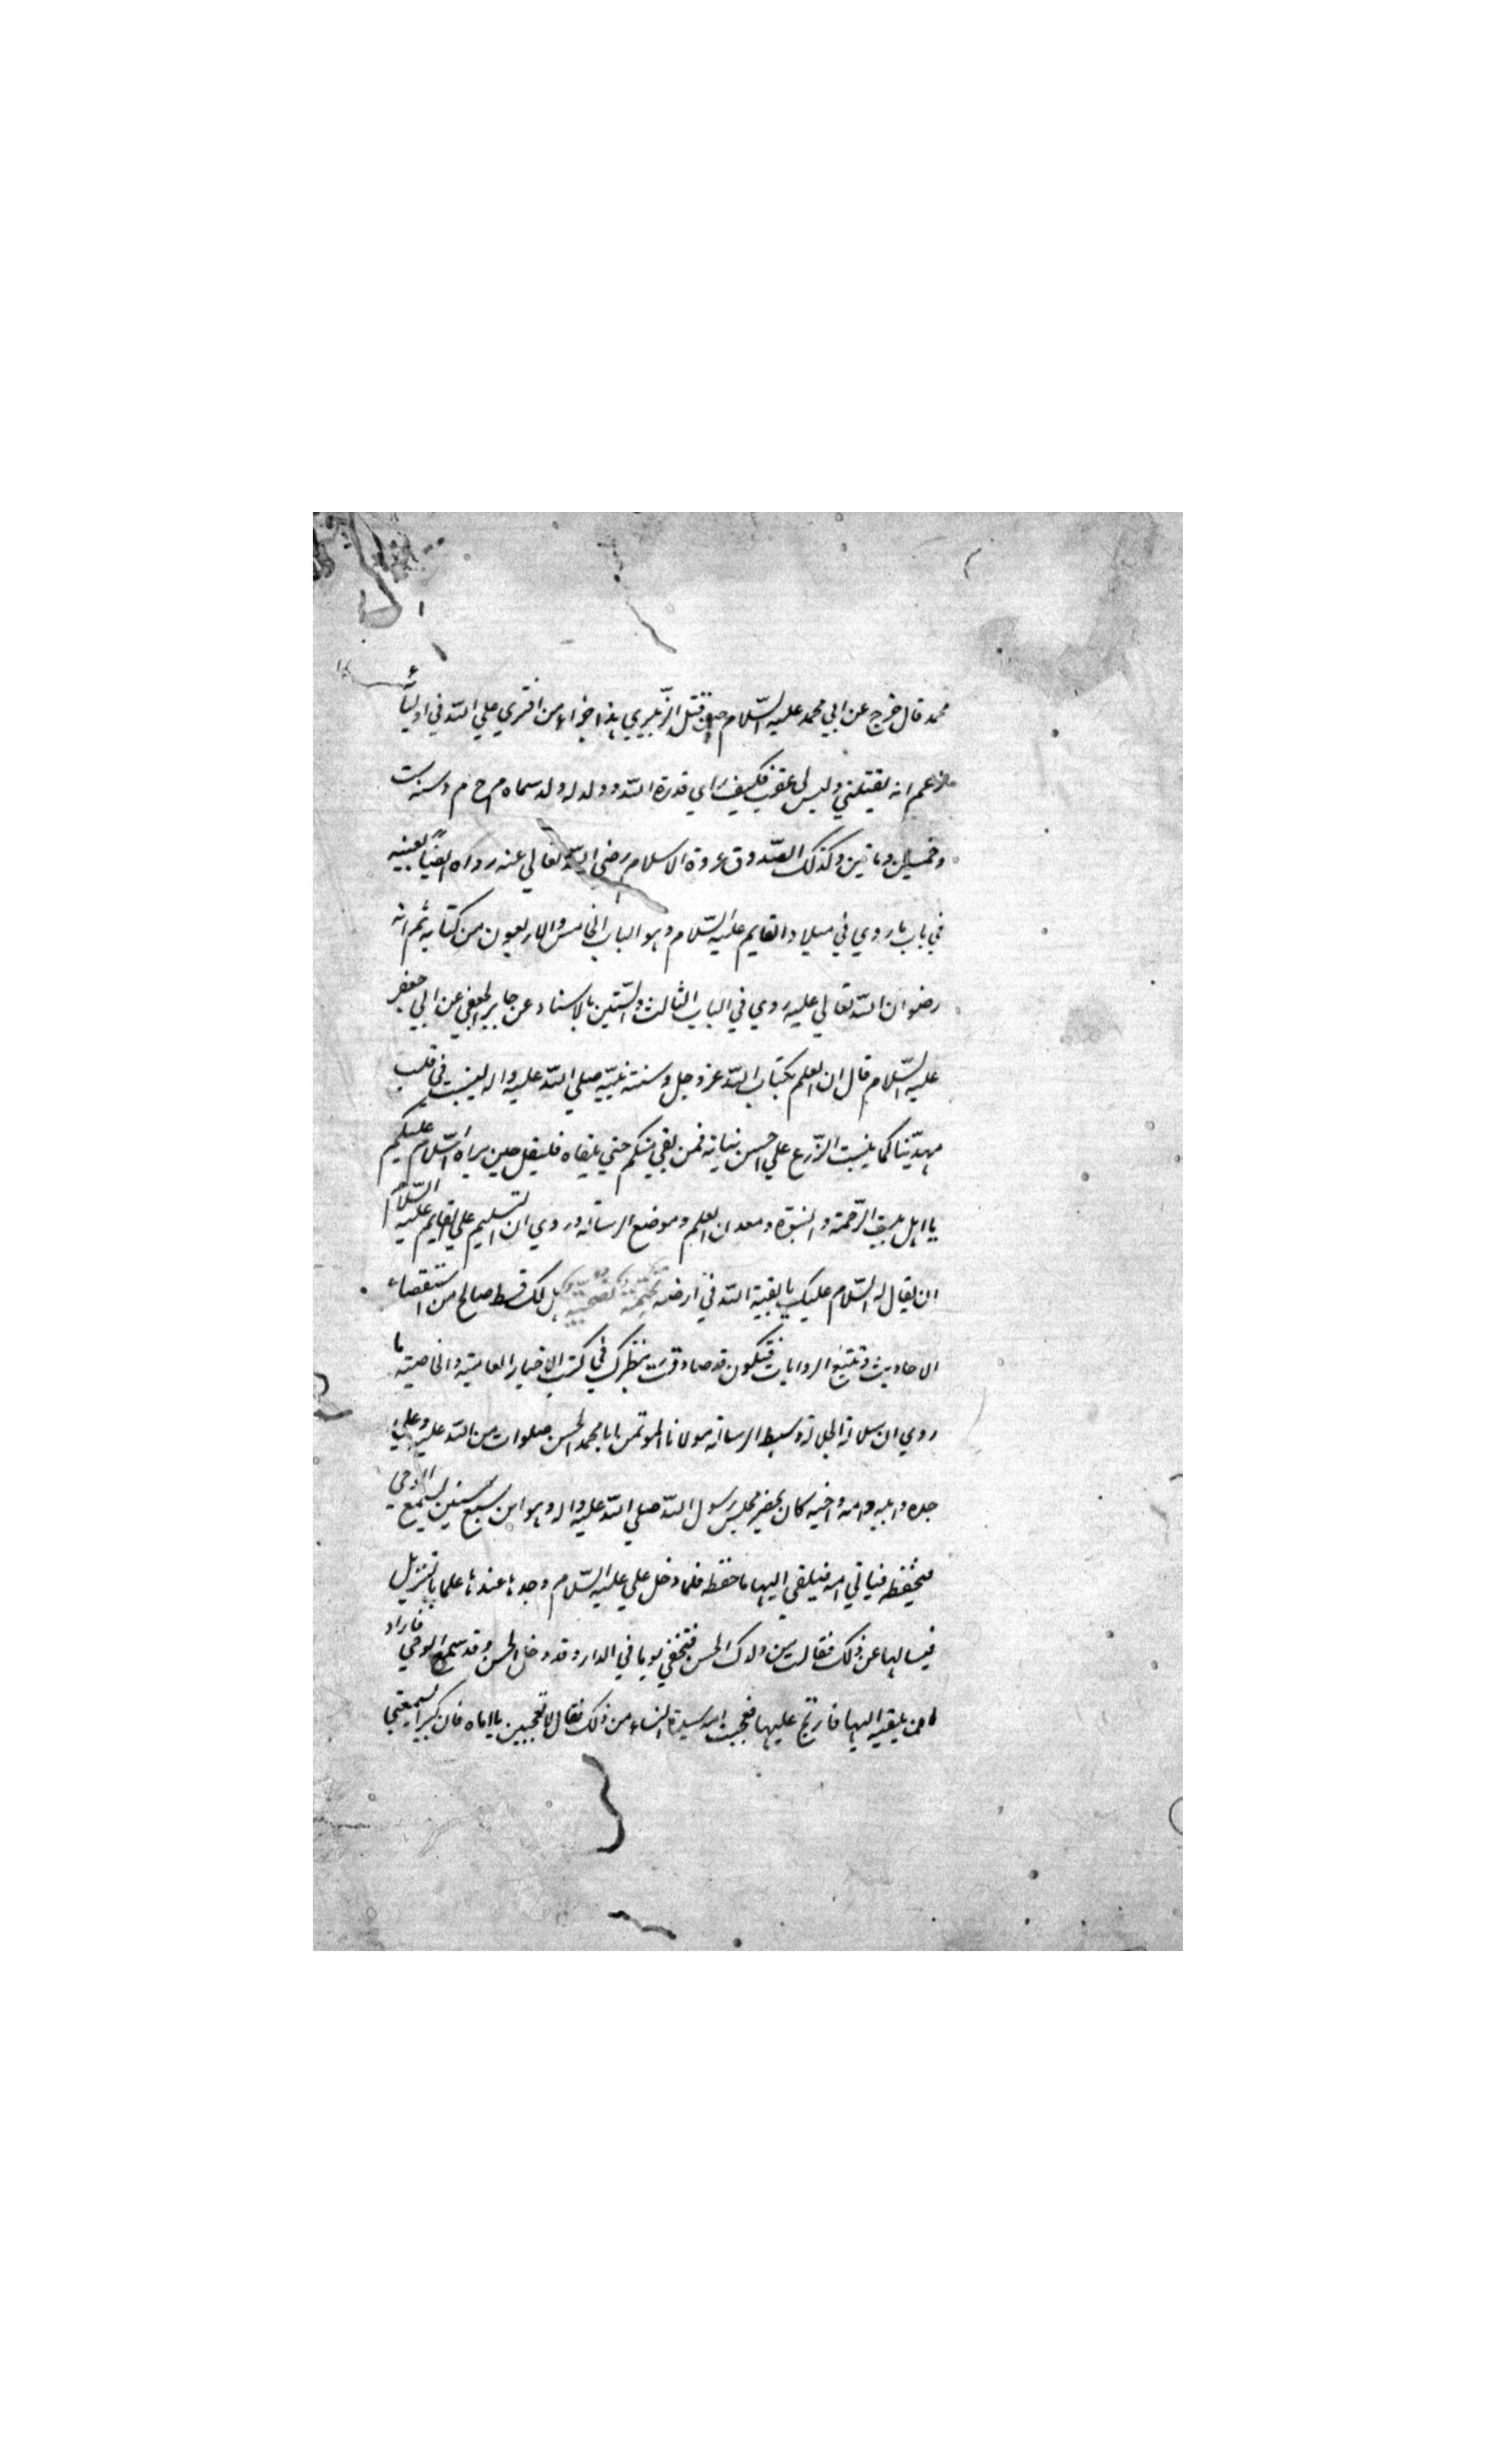 محمد قال خرج عن ابي محمد عليه السّلام حين قتل الزّبيري هذا جزاء من افتري علي اللّه في اوليائه
زعم انه يقتلني وليس لي عقب فكيف راي قدرة اللّه وولد له ولد سماه م ح م د سنة ست
وخمسين وماتين وكذلك الصّدوق عروة الاسلام رضي اللّه تعالي عنه رواه ايضاً بعينه
في باب ما روي في ميلاد القايم عليه السّلام وهو الباب الخامس والاربعون من كتابه ثم انه
رضوان اللّه تعالي عليه روي في الباب الثالث والسّتين بالاسناد عن جابر الجعفي عن ابي جعفر
عليه السّلام قال ان العلم بكتاب اللّه عز وجل وسنة نبيّه صلي اللّه عليه واله لينبت في قلب
مهديّنا كما ينبت الزّرع علي احسن نباته فمن بقي منكم حتي يلقاه فليقل حين يراه السّلام عليكم
يا اهل بيت الرّحمة والنبوّة ومعدن العلم وموضع الرسالة وروي ان التسليم علي القايم عليه السّلام
ان يقال له السّلام عليك يا بقية اللّه في ارضه هل لك قسط صالح من استقصاء
الاحاديث وتتبّع الروايات فتكون قد صادفت بنظرك في كتب الاخبار العامية والخاصية ما
روي ان سلالة الجلالة وسبط الرسالة مولانا المؤتمن ابا محمد الحسن صلوات من اللّه عليه وعلي
جده وابيه وامه واخيه كان يحضر مجلس رسول اللّه صلي اللّه عليه واله وهو ابن سبع سنين فيسمع الوحي
فيحفظه فياتي امه فيلقي اليها ما حفظه فلما دخل علي عليه السّلام وجدها عندها علما بالتنزيل
فيسالها عن ذلك فقالت من ولدك الحسن فتخفي يوما في الدار وقد دخل الحسن وقد سمع الوحي فاراد
ان يلقيه اليها فارتج عليها فعجبت امه سيدة النساء من ذلك فقال لا تعجبين يا اماه فان كبيرا يسمعني